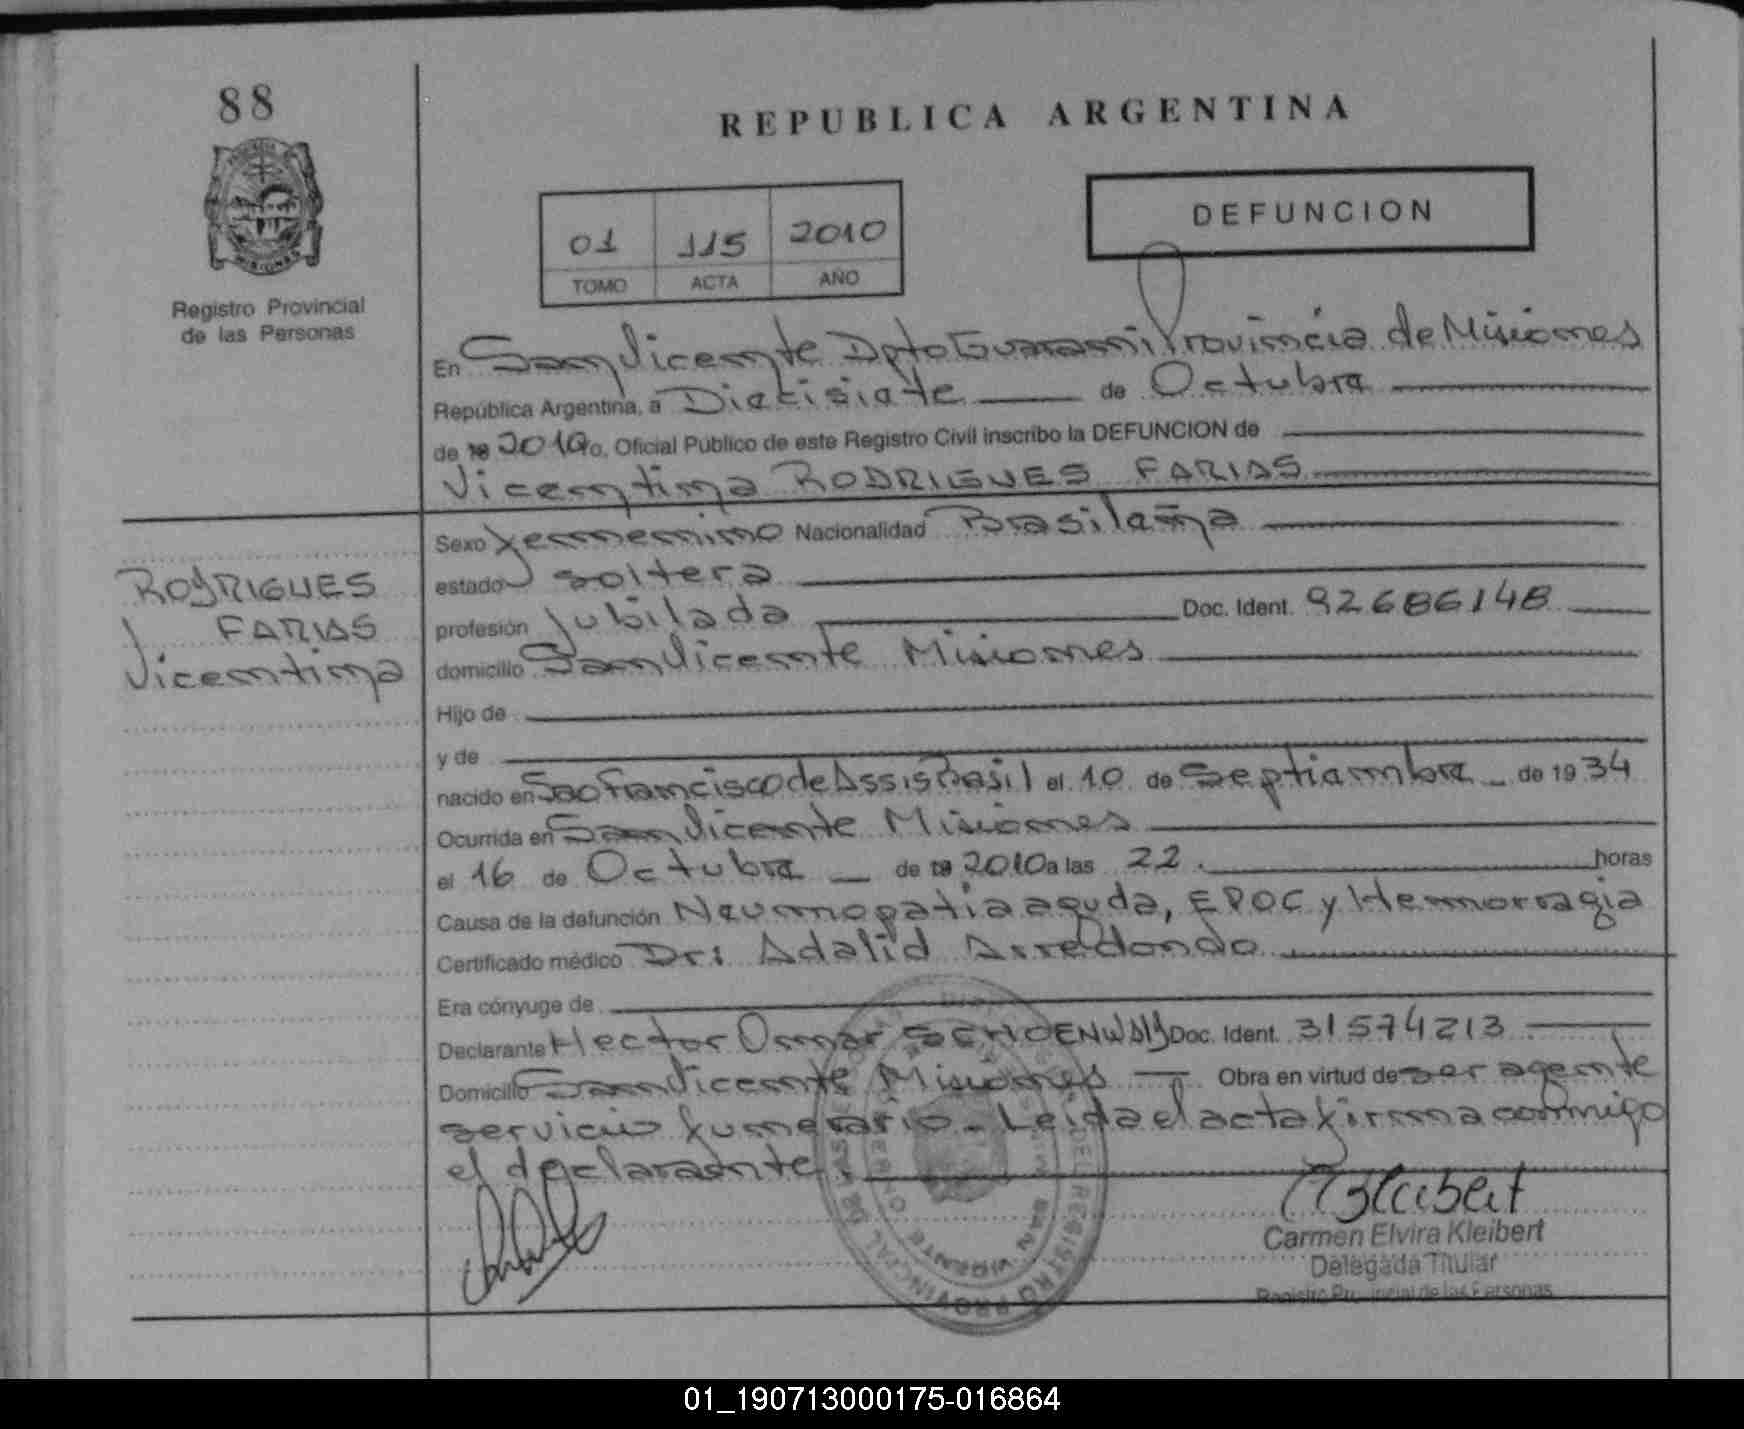 88
REPUBLICA ARGENTINA
MISIONES
Registro Provincial
de las Personas
01 115 2010
TOMO ACTA AÑO
DEFUNCION
En San Vicente Dpto Guarani Provincia de Misiones
República Argentina, a Diecisiete de Octubre
de 19 2010 o, Oficial Público de este Registro Civil inscribo la DEFUNCION de
Vicentina RODRIGUES FARIAS
RODRIGUES
FARIAS
Vicentina
Sexo femenino Nacionalidad Brasileña
estado soltera
profesión Jubilada Doc. Ident. 92686148
domicilio San Vicente Misiones
Hijo de
y de
nacido en Sao Francisco de Assis Brasil el 10 de Septiembre de 19 34
Ocurrida en San Vicente Misiones
el 16 de Octubre de 19 2010 a las 22. horas
Causa de la defunción Neumopatia aguda, EPOC y Hemorragia
Certificado médico Dr: Adalid Arredondo
Era cónyuge de
Declarante Hector Omar Doc. Ident. 31574213
Domicilio San Vicente Misiones Obra en virtud de ser agente
servicio funerario. Leida el acta firma conmigo
el declarante.
Carmen Elvira Kleibert
Delegada Titular
Registro Provincial de las Personas
01_190713000175-016864